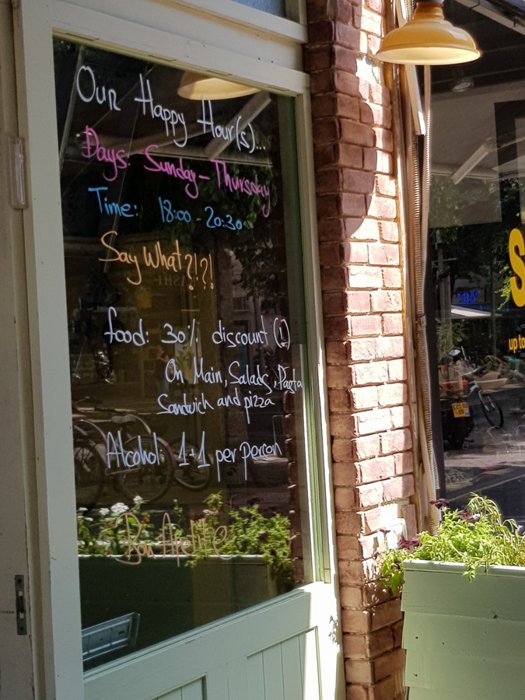 Our Happy Hour(s)...
Days: Sunday - Thursday
Time: 18:00 - 20:30
Say What?!?!
food: 30% discount (!)
On Main, Salads, Pasta
Sandwich and pizza
Alcohol: 1+1 per person
Bon Apetite
up to